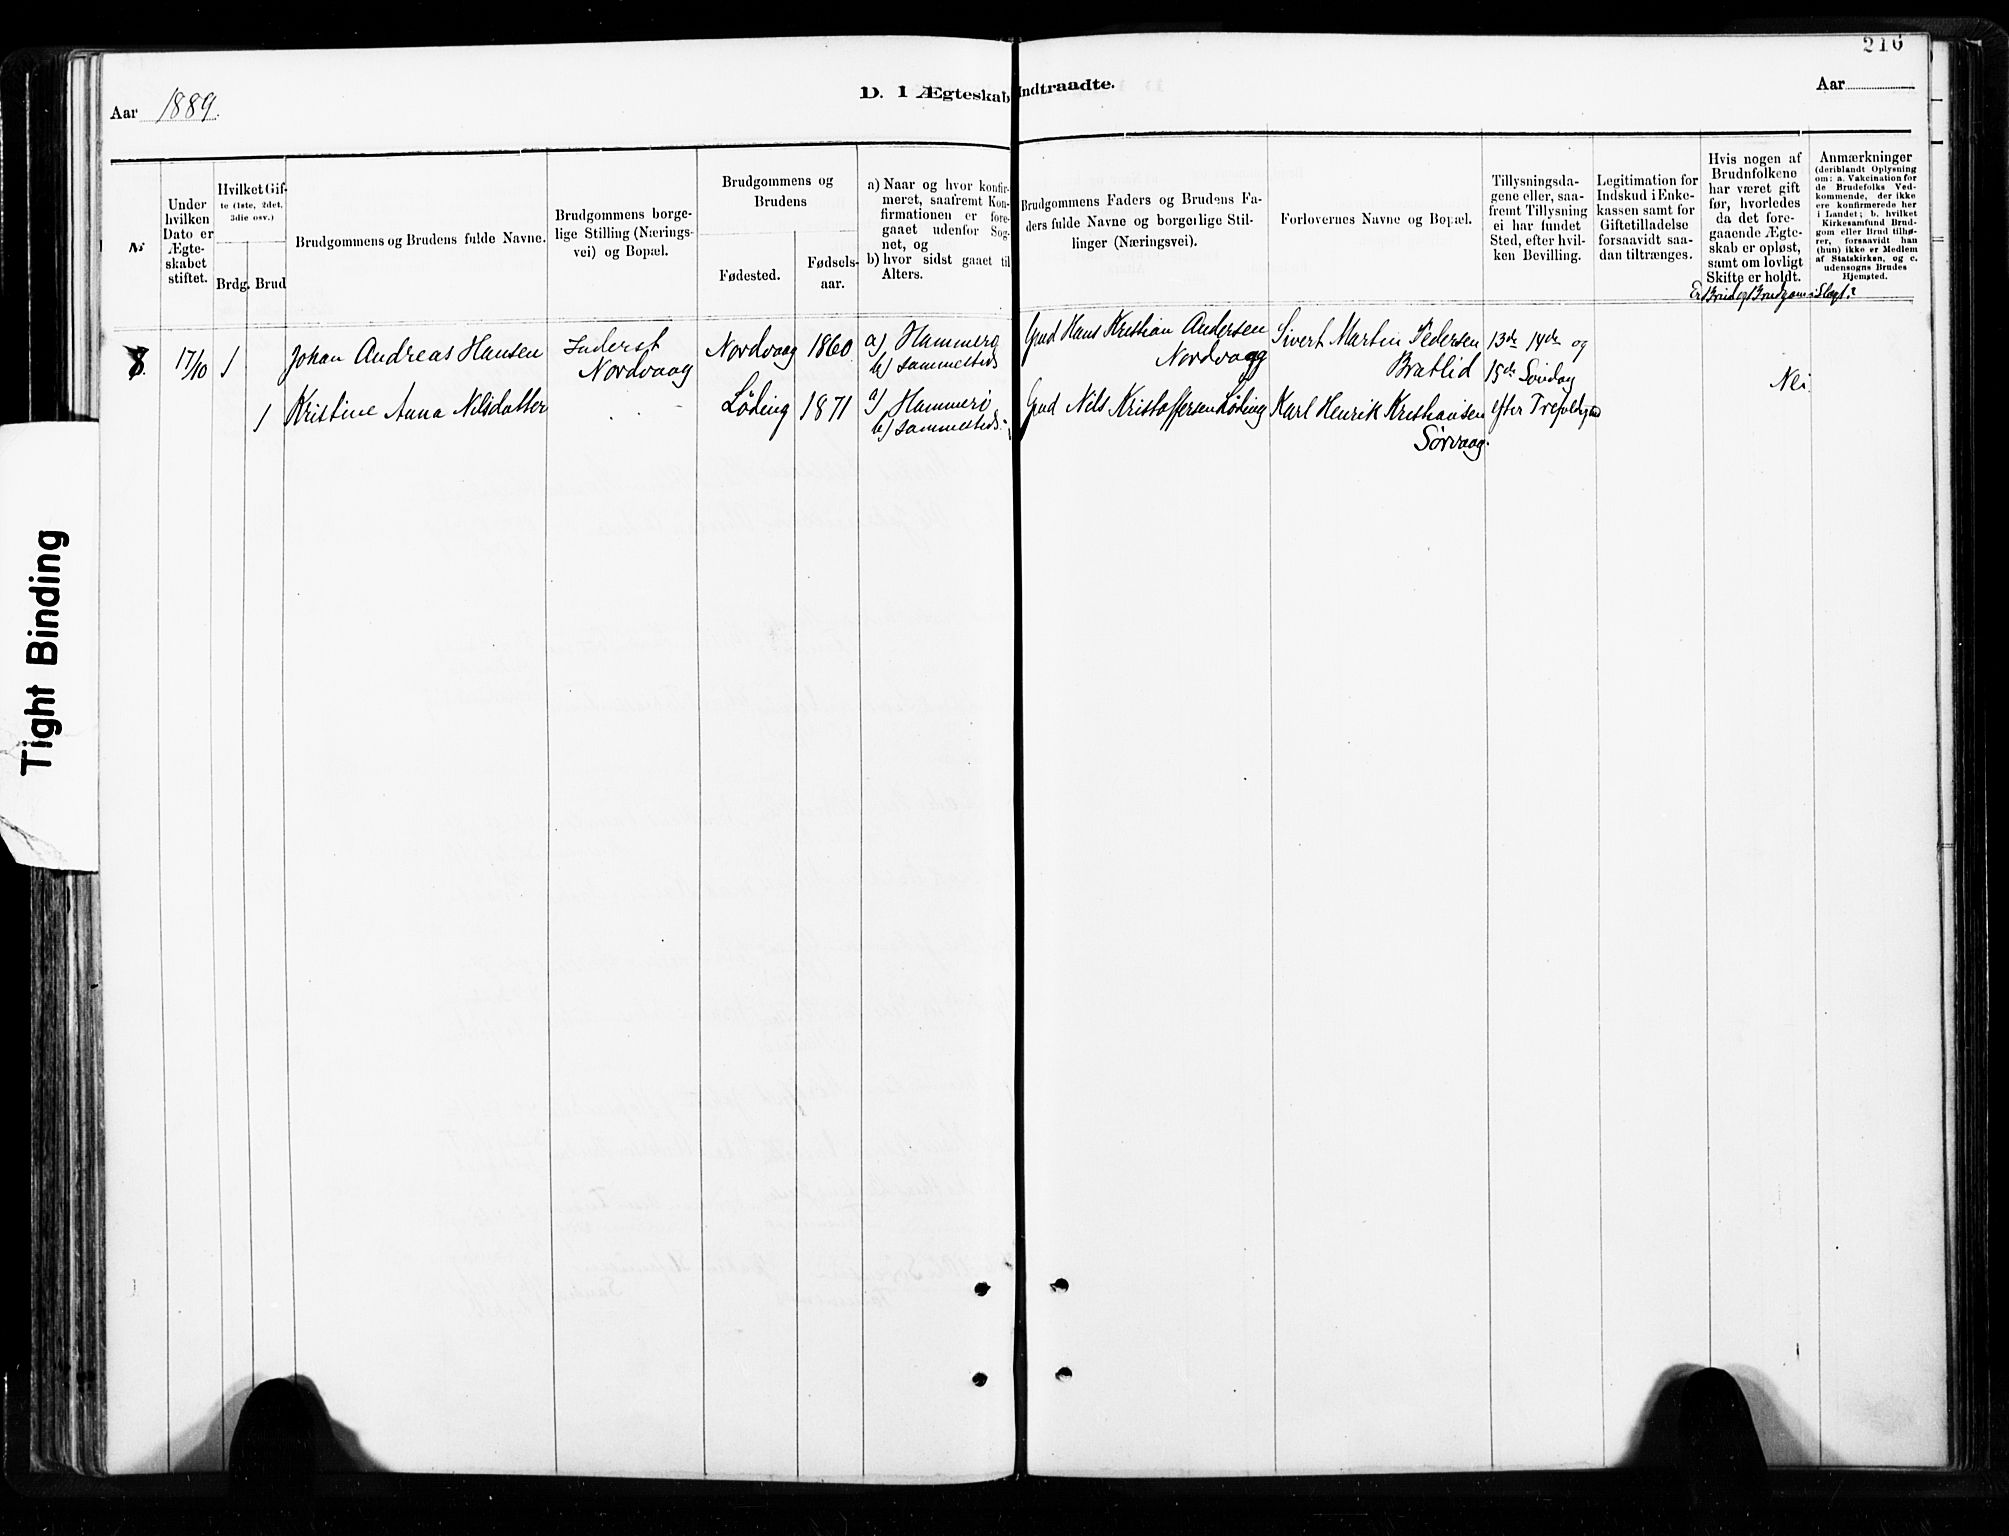 216
D. I Ægteskab Indtraadte.
Aar 1889.
Aar
№
Under
hvilken
Dato er
Ægte-
skabet
stiftet.
Hvilket Gif-
te (1ste, 2det,
3die osv.)
Brdg.
Brud
Brudgommens og Brudens fulde Navne.
Brudgommens borge-
lige Stilling (Nærings-
vei) og Bopæl.
Brudgommens og
Brudens
Fødested.
Fødsels-
aar.
a) Naar og hvor konfir-
meret, saafremt Kon-
firmationen er fore-
gaaet udenfor Sog-
net, og
b) hvor sidst gaaet til
Alters.
Brudgommens Faders og Brudens Fa-
ders fulde Navne og borgerlige Stil-
linger (Næringsvei).
Forlovernes Navne og Bopæl.
Tillysningsda-
gene eller, saa-
fremt Tillysning
ei har fundet
Sted, efter hvil-
ken Bevilling.
Legitimation for
Indskud i Enke-
kassen samt for
Giftetilladelse
forsaavidt saa-
dan tiltrænges.
Hvis nogen af
Brudnfolkene
har været gift
før, hvorledes
da det fore-
gaaende Ægte-
skab er opløst,
samt om lovligt
Skifte er holdt.
Er Brud og Brudgom i Slægt?
Anmærkninger
(deriblandt Oplysning
om: a. Vakcination for
de Brudefolks Ved-
kommende, der ikke
ere konfirmerede her
i Landet; b. hvilket
Kirkesamfund Brud-
gom eller Brud tilhø-
rer, forsaavidt han
(hun) ikke er Medlem
af Statskirken, og c.
udensogns Brudes
Hjemsted.
8. 17/10 1 Johan Andreas Hansen Inderst Nordvaag 1860 a) Hammerø Gmd Hans Kristian Andersen Sivert Martin Pedersen 13de 14de og
Nordvaag b) sammesteds Nordvaag Bratlid 15de Søndag
Nei
1 Kristine Anna Nilsdatter Løding 1871 a) Hammerø Gmd Nils Kristoffersen Løding Karl Henrik Kristiansen efter Trefoldigh
b) sammesteds. Sørvaag.
Tight Binding